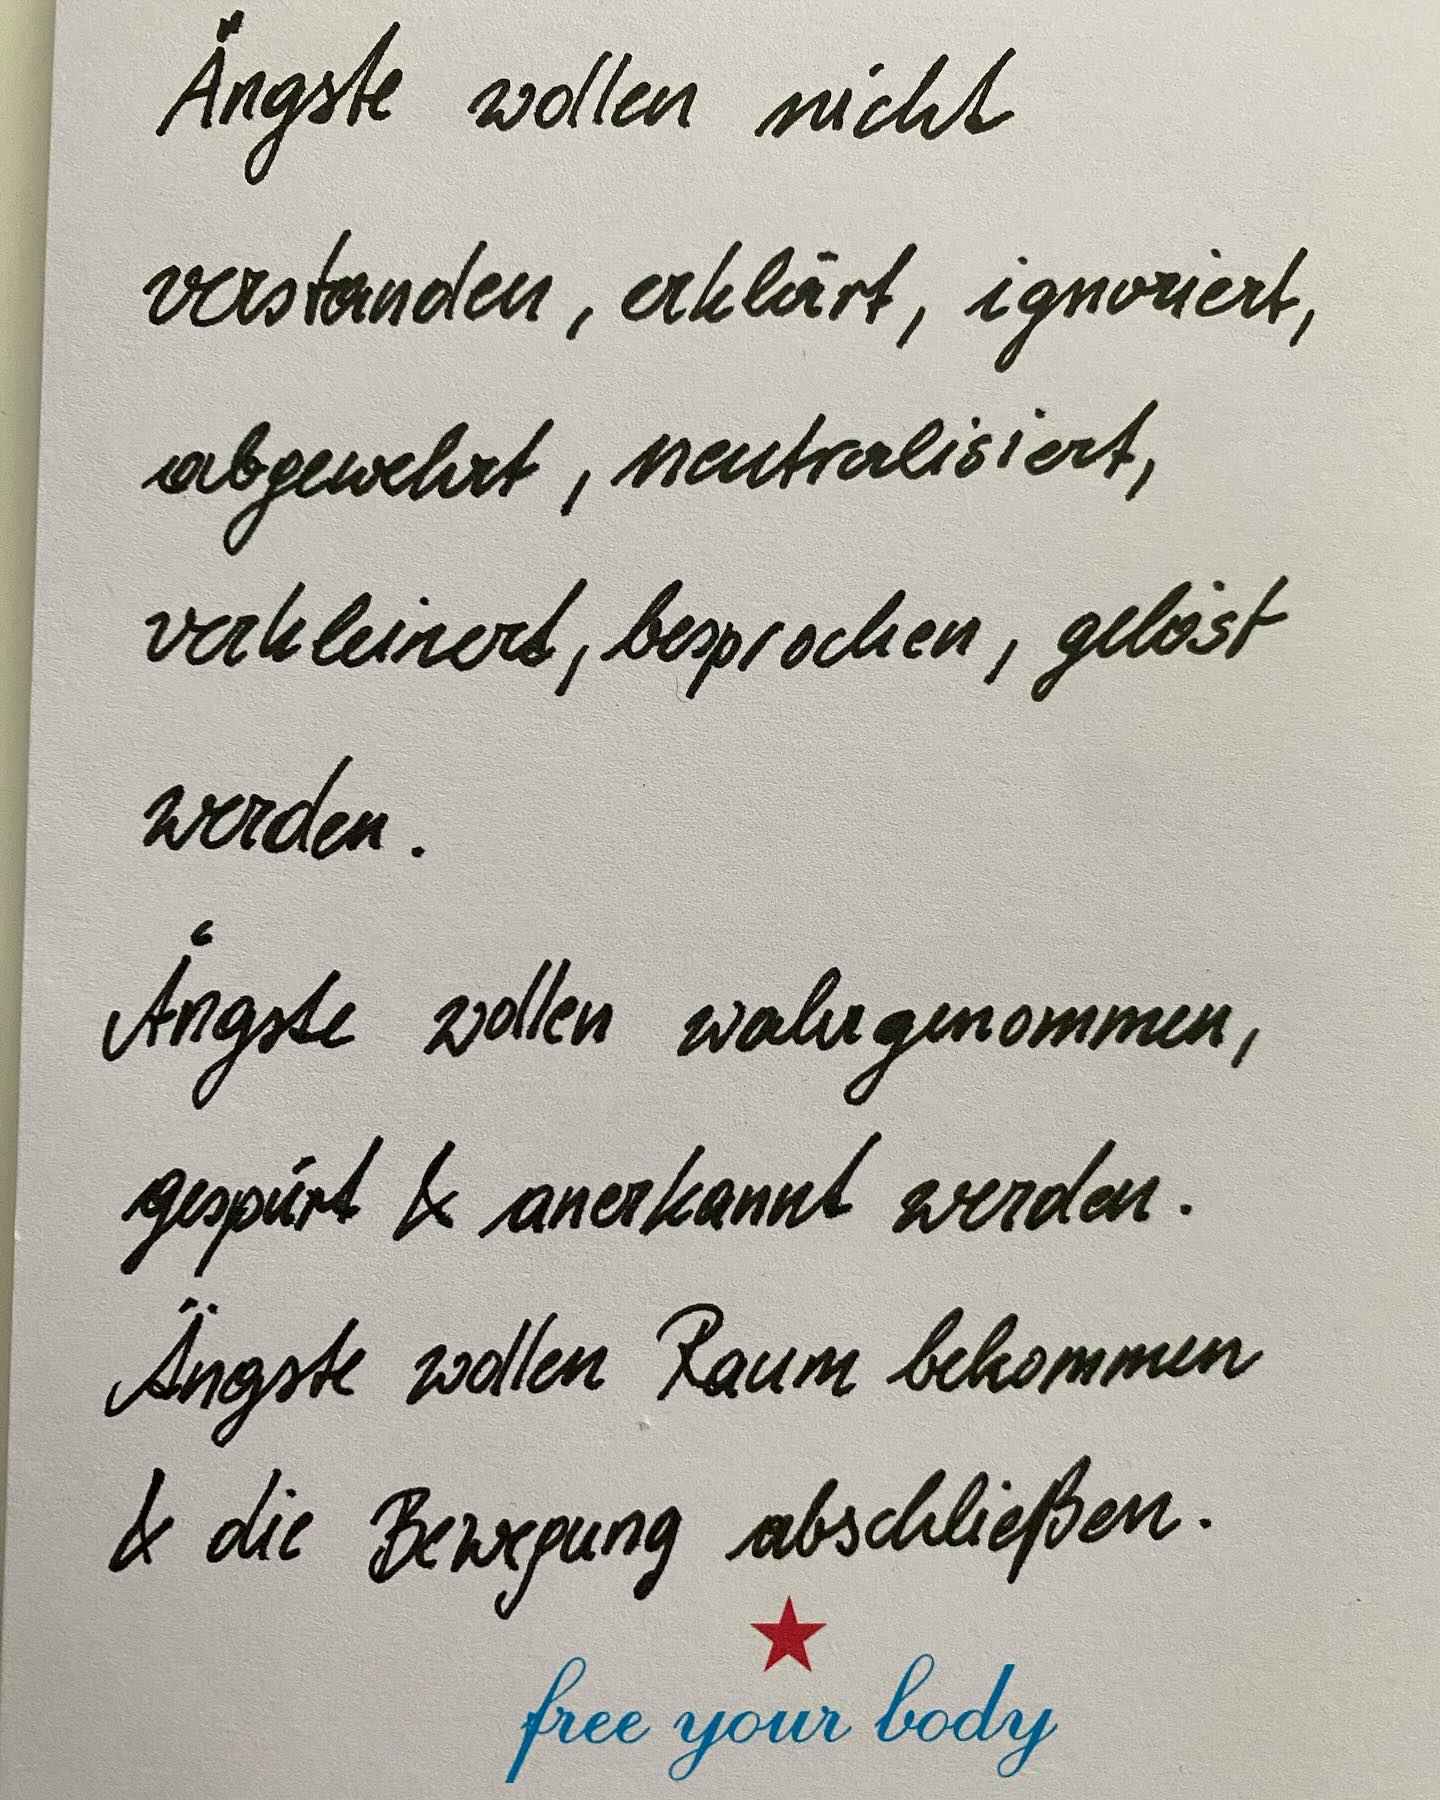 Ängste wollen nicht
verstanden, erklärt, ignoriert,
abgewehrt, neutralisiert,
verkleinert, besprochen, gelöst
werden.
Ängste wollen wahrgenommen,
gespürt & anerkannt werden.
Ängste wollen Raum bekommen
& die Bewegung abschließen.
free your body